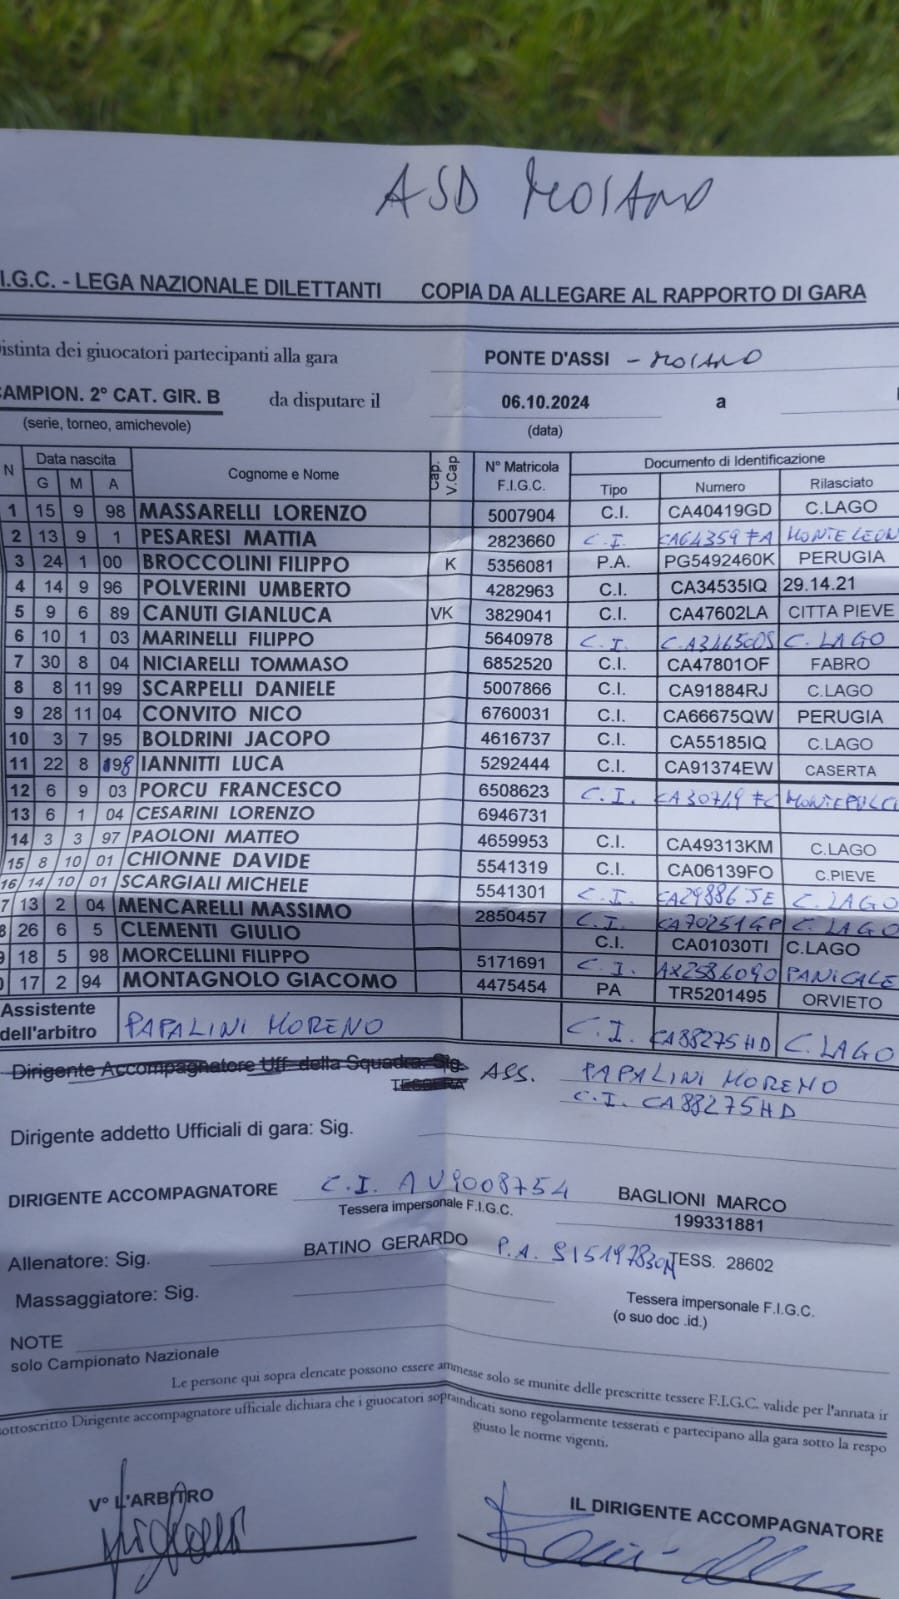 ASD MOIANO
I.G.C. - LEGA NAZIONALE DILETTANTI COPIA DA ALLEGARE AL RAPPORTO DI GARA
istinta dei giuocatori partecipanti alla gara PONTE D'ASSI - MOIANO
CAMPION. 2° CAT. GIR. B da disputare il 06.10.2024 a
(serie, torneo, amichevole) (data)
N Data nascita Cognome e Nome Cap. V.Cap N° Matricola F.I.G.C. Documento di Identificazione
G M A Tipo Numero Rilasciato
1 15 9 98 MASSARELLI LORENZO 5007904 C.I. CA40419GD C.LAGO
2 13 9 1 PESARESI MATTIA 2823660 C.I. CA64359FA MONTELEON
3 24 1 00 BROCCOLINI FILIPPO K 5356081 P.A. PG5492460K PERUGIA
4 14 9 96 POLVERINI UMBERTO 4282963 C.I. CA34535IQ 29.14.21
5 9 6 89 CANUTI GIANLUCA VK 3829041 C.I. CA47602LA CITTA PIEVE
6 10 1 03 MARINELLI FILIPPO 5640978 C.I. C.LAGO
7 30 8 04 NICIARELLI TOMMASO 6852520 C.I. CA47801OF FABRO
8 8 11 99 SCARPELLI DANIELE 5007866 C.I. CA91884RJ C.LAGO
9 28 11 04 CONVITO NICO 6760031 C.I. CA66675QW PERUGIA
10 3 7 95 BOLDRINI JACOPO 4616737 C.I. CA55185IQ C.LAGO
11 22 8 98 IANNITTI LUCA 5292444 C.I. CA91374EW CASERTA
12 6 9 03 PORCU FRANCESCO 6508623 C.I. CA30719FC MONTEPULCI
13 6 1 04 CESARINI LORENZO 6946731
14 3 3 97 PAOLONI MATTEO 4659953 C.I. CA49313KM C.LAGO
15 8 10 01 CHIONNE DAVIDE 5541319 C.I. CA06139FO C.PIEVE
16 14 10 01 SCARGIALI MICHELE 5541301 C.I. CA29886JE C.LAGO
7 13 2 04 MENCARELLI MASSIMO 2850457 C.I. CA70251GP C.LAGO
8 26 6 5 CLEMENTI GIULIO C.I. CA01030TI C.LAGO
9 18 5 98 MORCELLINI FILIPPO 5171691 C.I. AX2586090 PANICALE
0 17 2 94 MONTAGNOLO GIACOMO 4475454 PA TR5201495 ORVIETO
Assistente dell'arbitro PAPALINI MORENO C.I. CA88275HD C.LAGO
Dirigente Accompagnatore Uff. della Squadra. Sig. ASS. PAPALINI MORENO
TESSERA C.I. CA88275HD
Dirigente addetto Ufficiali di gara: Sig.
DIRIGENTE ACCOMPAGNATORE C.I. AV9008754 BAGLIONI MARCO
Tessera impersonale F.I.G.C. 199331881
Allenatore: Sig. BATINO GERARDO P.A. S15197830M TESS. 28602
Massaggiatore: Sig. Tessera impersonale F.I.G.C.
(o suo doc .id.)
NOTE
solo Campionato Nazionale
Le persone qui sopra elencate possono essere ammesse solo se munite delle prescritte tessere F.I.G.C. valide per l'annata
ottoscritto Dirigente accompagnatore ufficiale dichiara che i giuocatori sopraindicati sono regolarmente tesserati e partecipano alla gara sotto la respo
giusto le norme vigenti.
V° L'ARBITRO IL DIRIGENTE ACCOMPAGNATORE